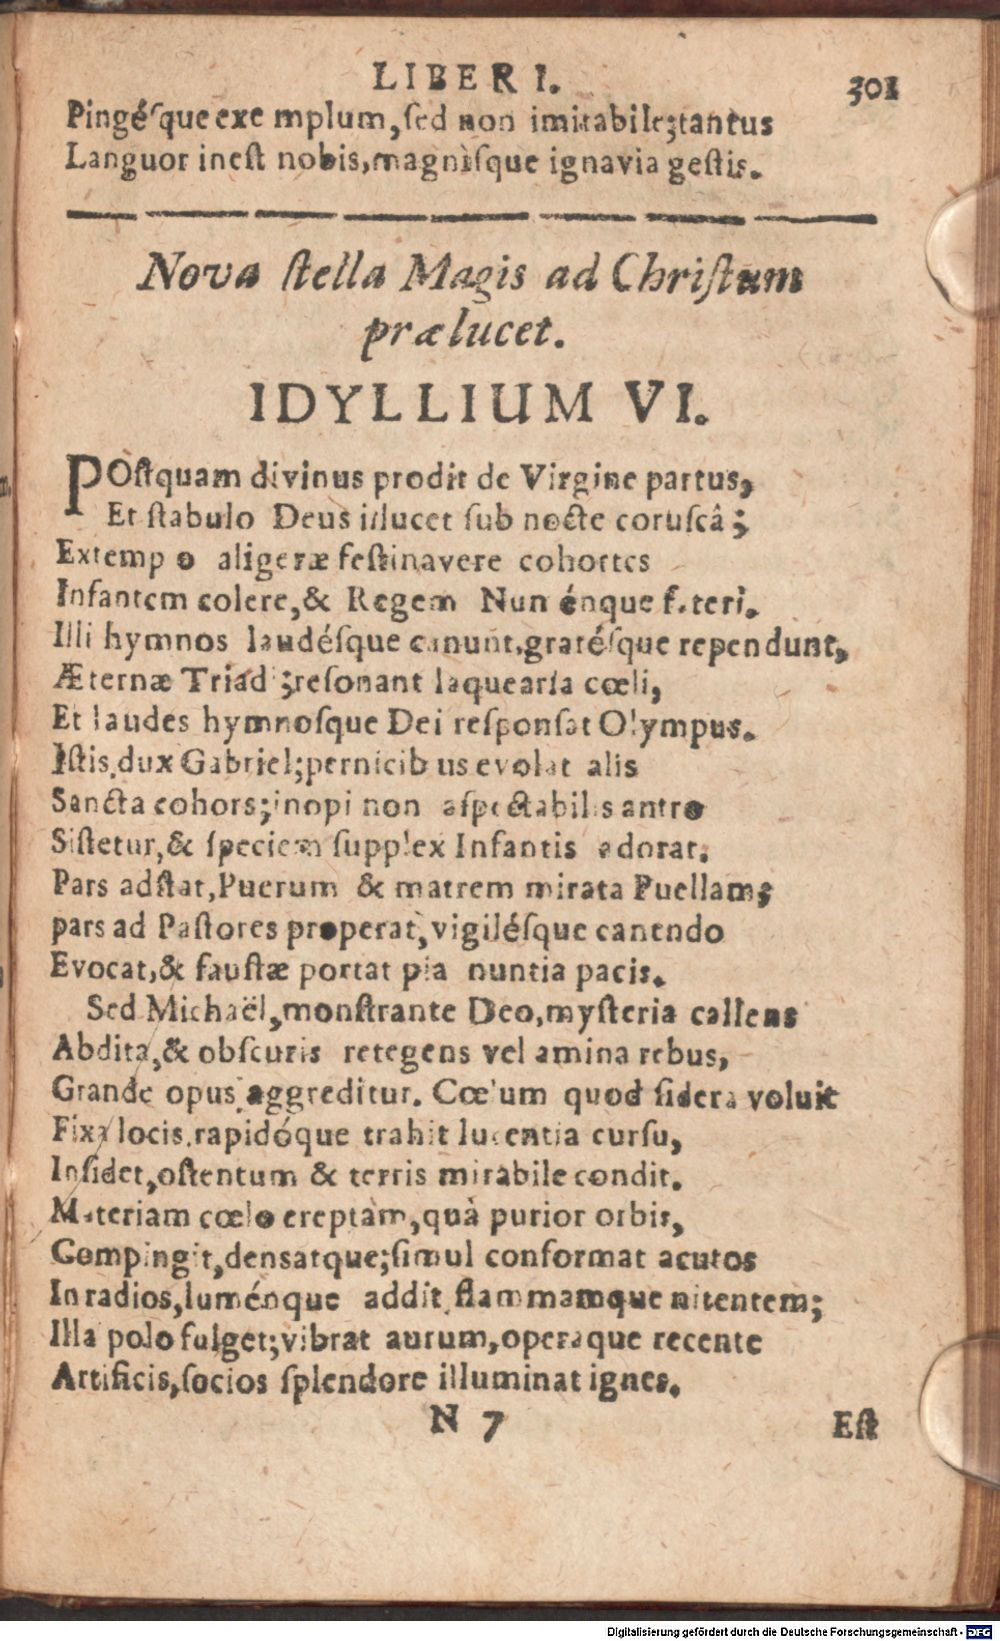 LIBER I. 301
Pingésque exe mplum, sed non imitabile; tantus
Languor inest nobis, magnisque ignavia gestis.
Nova stella Magis ad Christum
prælucet.
IDYLLIUM VI.
POstquam divinus prodit de Virgine partus,
Et stabulo Deus illucet sub nocte coruscâ;
Extemp o aligeræ festinavere cohortes
Infantem colere, & Regem Nun énque f teri.
Illi hymnos laudésque canunt, gratésque rependunt,
Æternæ Triad ; resonant laquearia cœli,
Et laudes hymnosque Dei responsat Olympus.
Istis, dux Gabriel; pernicibus evolat alis
Sancta cohors; inopi non aspectabilis antro
Sistetur, & speciem supplex Infantis adorat.
Pars adstat, Puerum & matrem mirata Puellam;
pars ad Pastores properat, vigilésque canendo
Evocat, & faustæ portat pia nuntia pacis.
Sed Michaël, monstrante Deo, mysteria callens
Abdita, & obscuris retegens velamina rebus,
Grande opus aggreditur. Cœlum quod sidera voluit
Fixa locis, rapidóque trahit lucentia cursu,
Insidet, ostentum & terris mirabile condit.
Materiam cœlo ereptam, quà purior orbis,
Compingit, densatque; simul conformat acutos
In radios, luménque addit flammamque nitentem;
Illa polo fulget; vibrat aurum, operaque recente
Artificis, socios splendore illuminat ignes.
N 7 Est
Digitalisierung gefördert durch die Deutsche Forschungsgemeinschaft - DFG